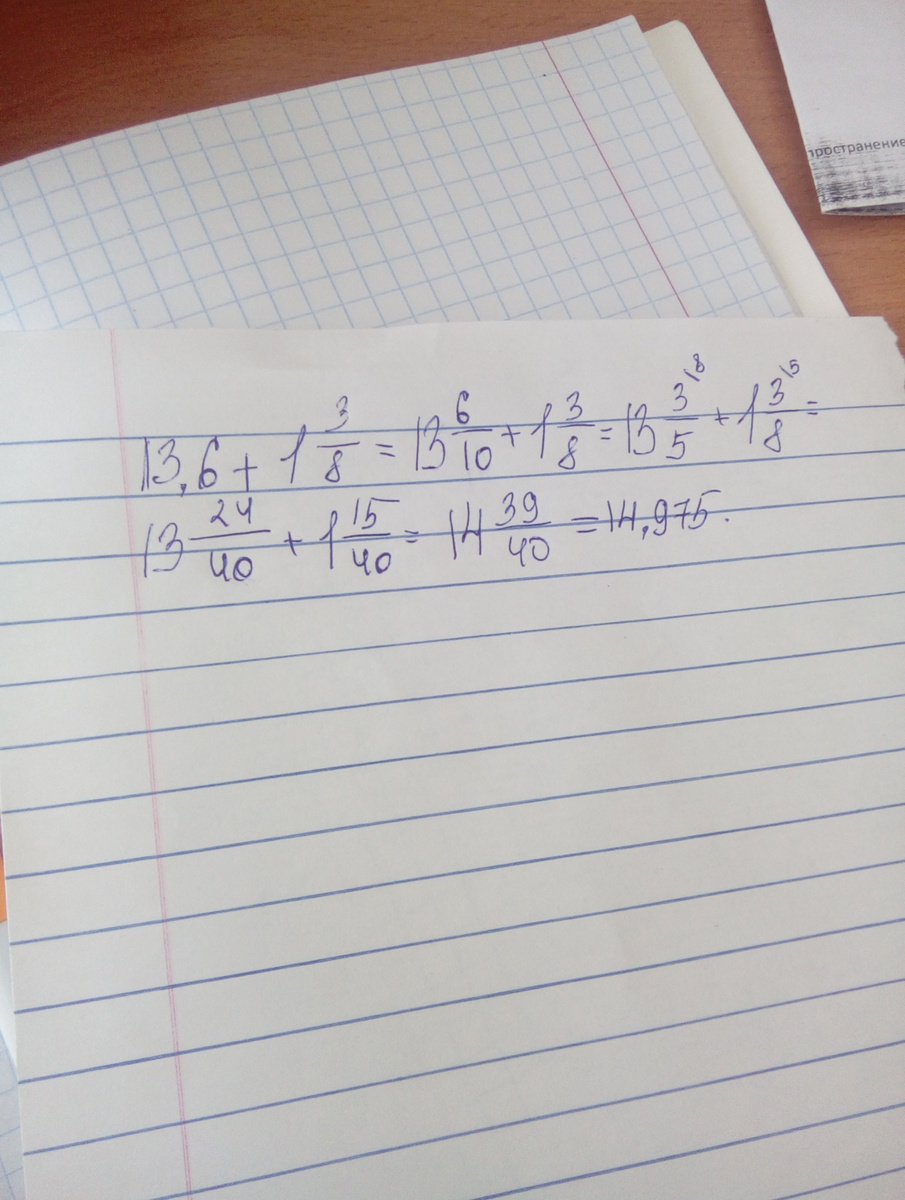 пространение
13,6 + 1 3/8 = 13 6/10 + 1 3/8 = 13 3\8/5 + 1 3\5/8 =
13 24/40 + 1 15/40 = 14 39/40 = 14,975.